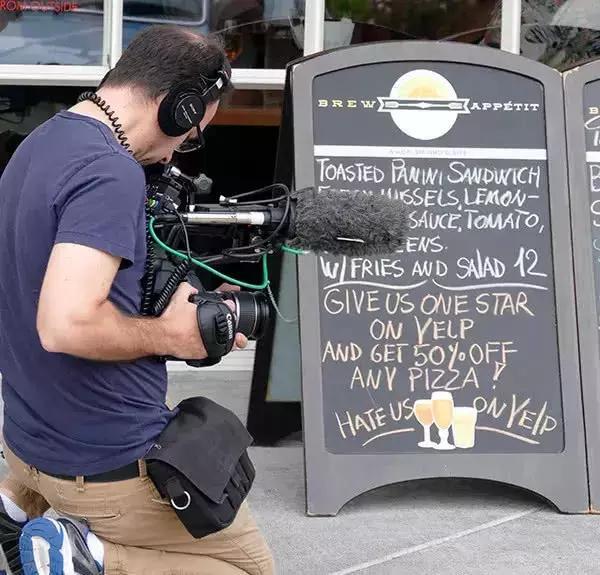 ROM OUTSIDE
BREW APPÉTIT
TOASTED PANINI SANDWICH
MUSSELS, LEMON-
SAUCE, TOMATO,
W/ FRIES AND SALAD 12
GIVE US ONE STAR
ON YELP
AND GET 50% OFF
ANY PIZZA!
HATE US ON YELP
Canon